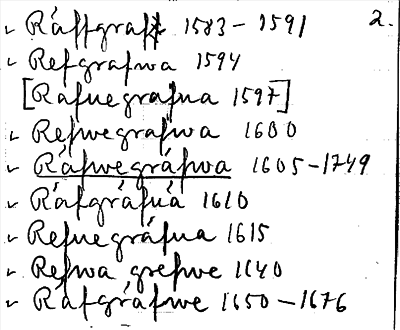 2.
Ráffgraff 1583–1591
Refgrafwa 1594
[Rafuegrafua 1597]
Refwegrafwa 1600
Ráfwegráfwa 1605–1749
Ráfgráfuá 1610
Refuegráfua 1615
Refwa grefwe 1640
Ráfgráfwe 1650–1676